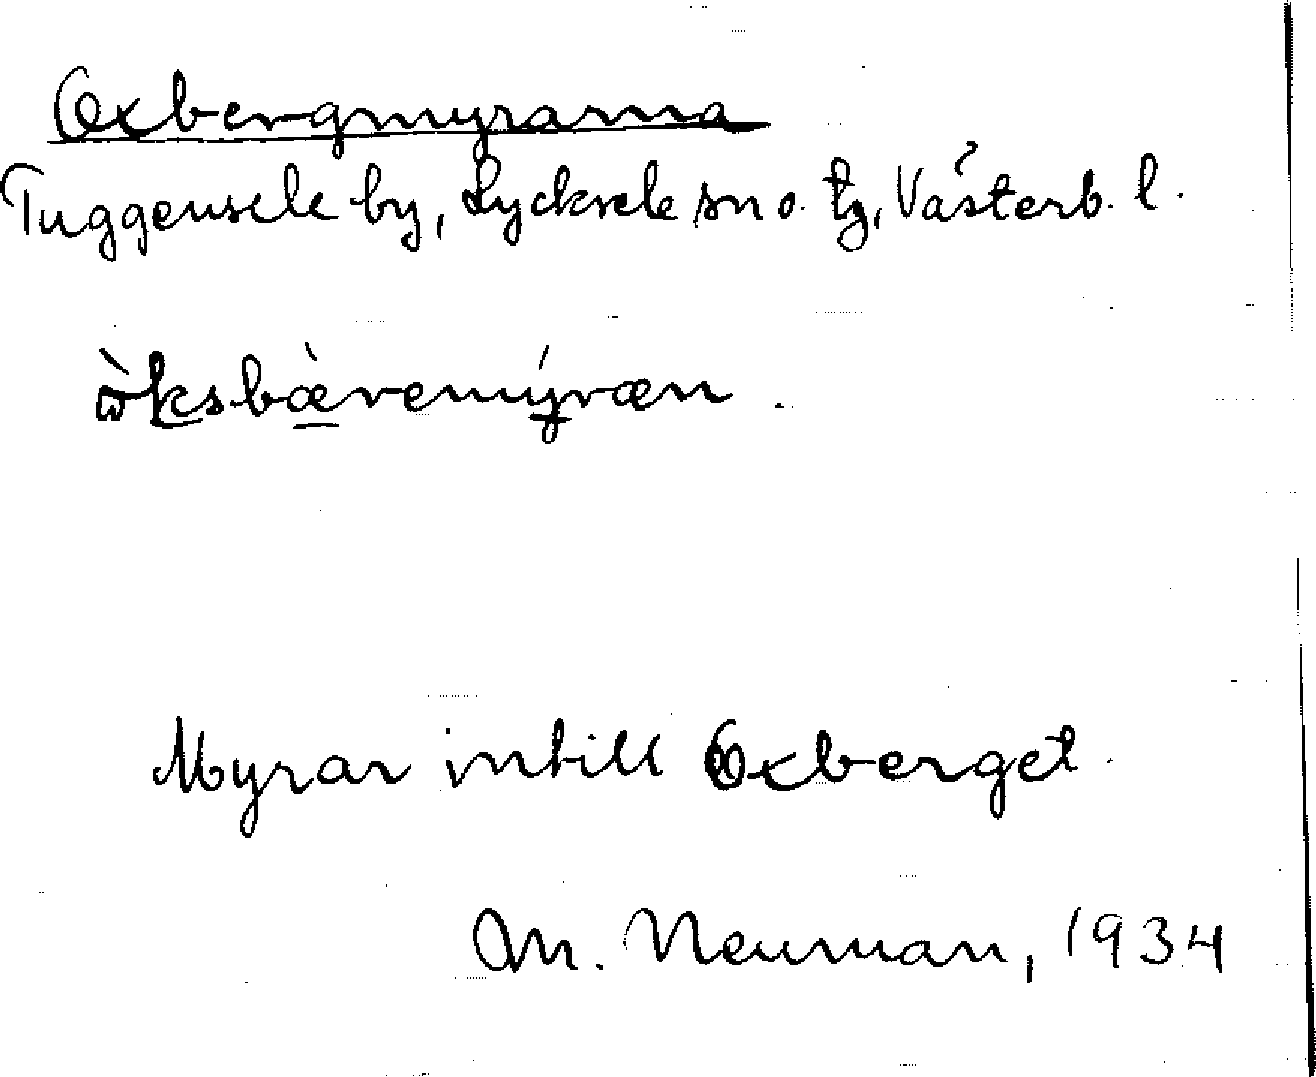 Oxbergmyrarna
Tuggensele by, Lycksele sn o. tg, Västerb. l.
ὼksbæ̀remýræn.
Myrar intill Oxberget.
M. Neuman, 1934